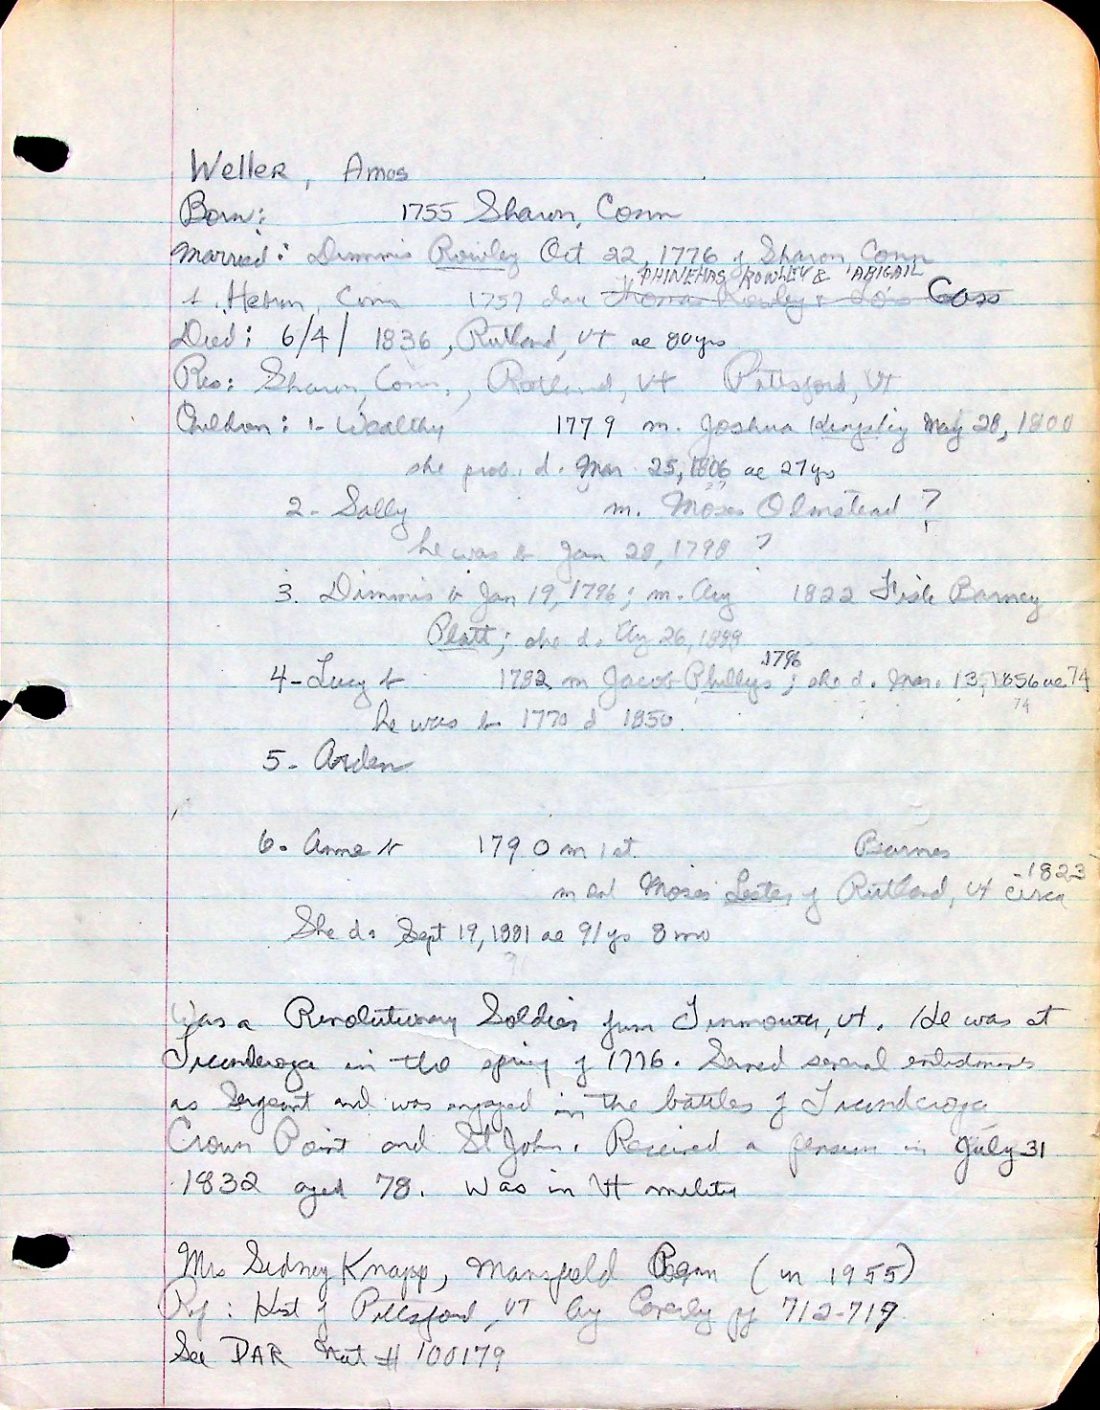 Weller, Amos
Born: 1755 Sharon, Conn
Married: Dimmis Rowley Oct 22, 1776 of Sharon Conn
PHINEHAS ROWLEY & ABIGAIL
b. Hebron, Conn 1757 dau Thomas Rowley & Lois Goss
Died: 6/4/ 1836, Rutland, VT ae 80 yrs
Res: Sharon, Conn., Rutland, Vt Pittsford, Vt
Children: 1- Wealthy 1779 m. Joshua Kingsley May 28, 1800
she prob. d. Mar 25, 1806 ae 27 yr
2- Sally m. Moses Olmstead ?
he was b Jan 28, 1798 ?
3. Dimmis b Jan 19, 1796; m. Aug 1822 Fisk Barney
Platt; she d. Aug 26, 1899
1796
4- Lucy b 1782 m Jacob Phillips; she d. Mar. 13, 1856 ae 74
74
he was b 1770 d 1850.
5- Arden
6. Anne b 1790 m 1st Barnes
-1823
m 2nd Moses Lester of Rutland, Vt circa
She d. Sept 19, 1881 ae 91 ys 8 mo
Was a Revolutionary Soldier from Tinmouth, Vt. He was at
Ticonderoga in the spring of 1776. Served several enlistments
as Sergeant and was engaged in the battles of Ticonderoga
Crown Point and St John. Received a pension in July 31
1832 aged 78. Was in Vt militia
Mrs Sidney Knapp, Mansfield Penn (in 1955)
Ref: Hist of Pittsford, VT by Caverly pg 712-719
See DAR Nat # 100179